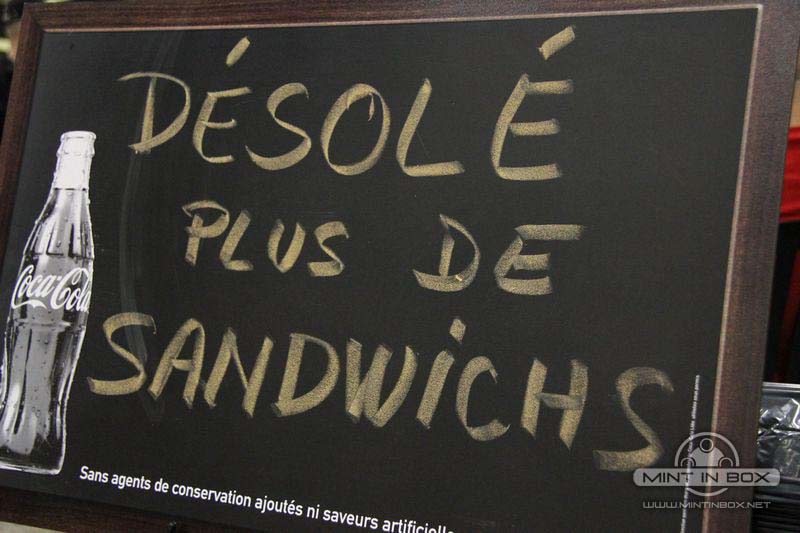 DÉSOLÉ
PLUS DE
SANDWiCHS
Coca-Cola
Sans agents de conservation ajoutés ni saveurs artificielle
MINT IN BOX
WWW.MINTINBOX.NET